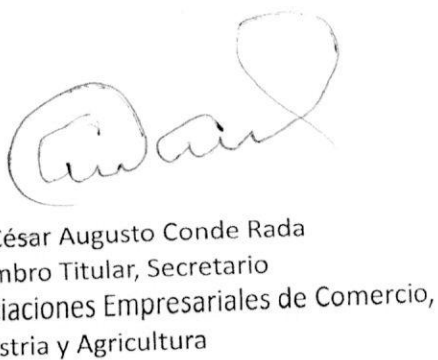 César Augusto Conde Rada
mbro Titular, Secretario
iaciones Empresariales de Comercio,
stria y Agricultura